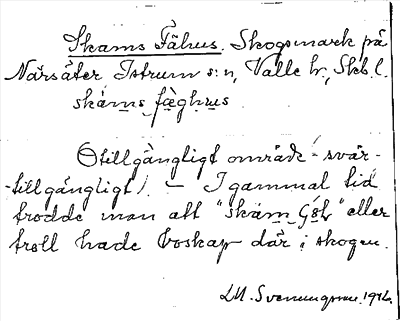 Skams Fähus. Skogsmark på
Närsäter Istrum s:n, Valle hr, Skb.l.
skám̲s fæ̀ghus
Otillgängligt område (svår-
-tillgängligt). — I gammal tid
trodde man att "skäm Göls" eller
troll hade boskap där i skogen.
LM. Svenungsson. 1916.